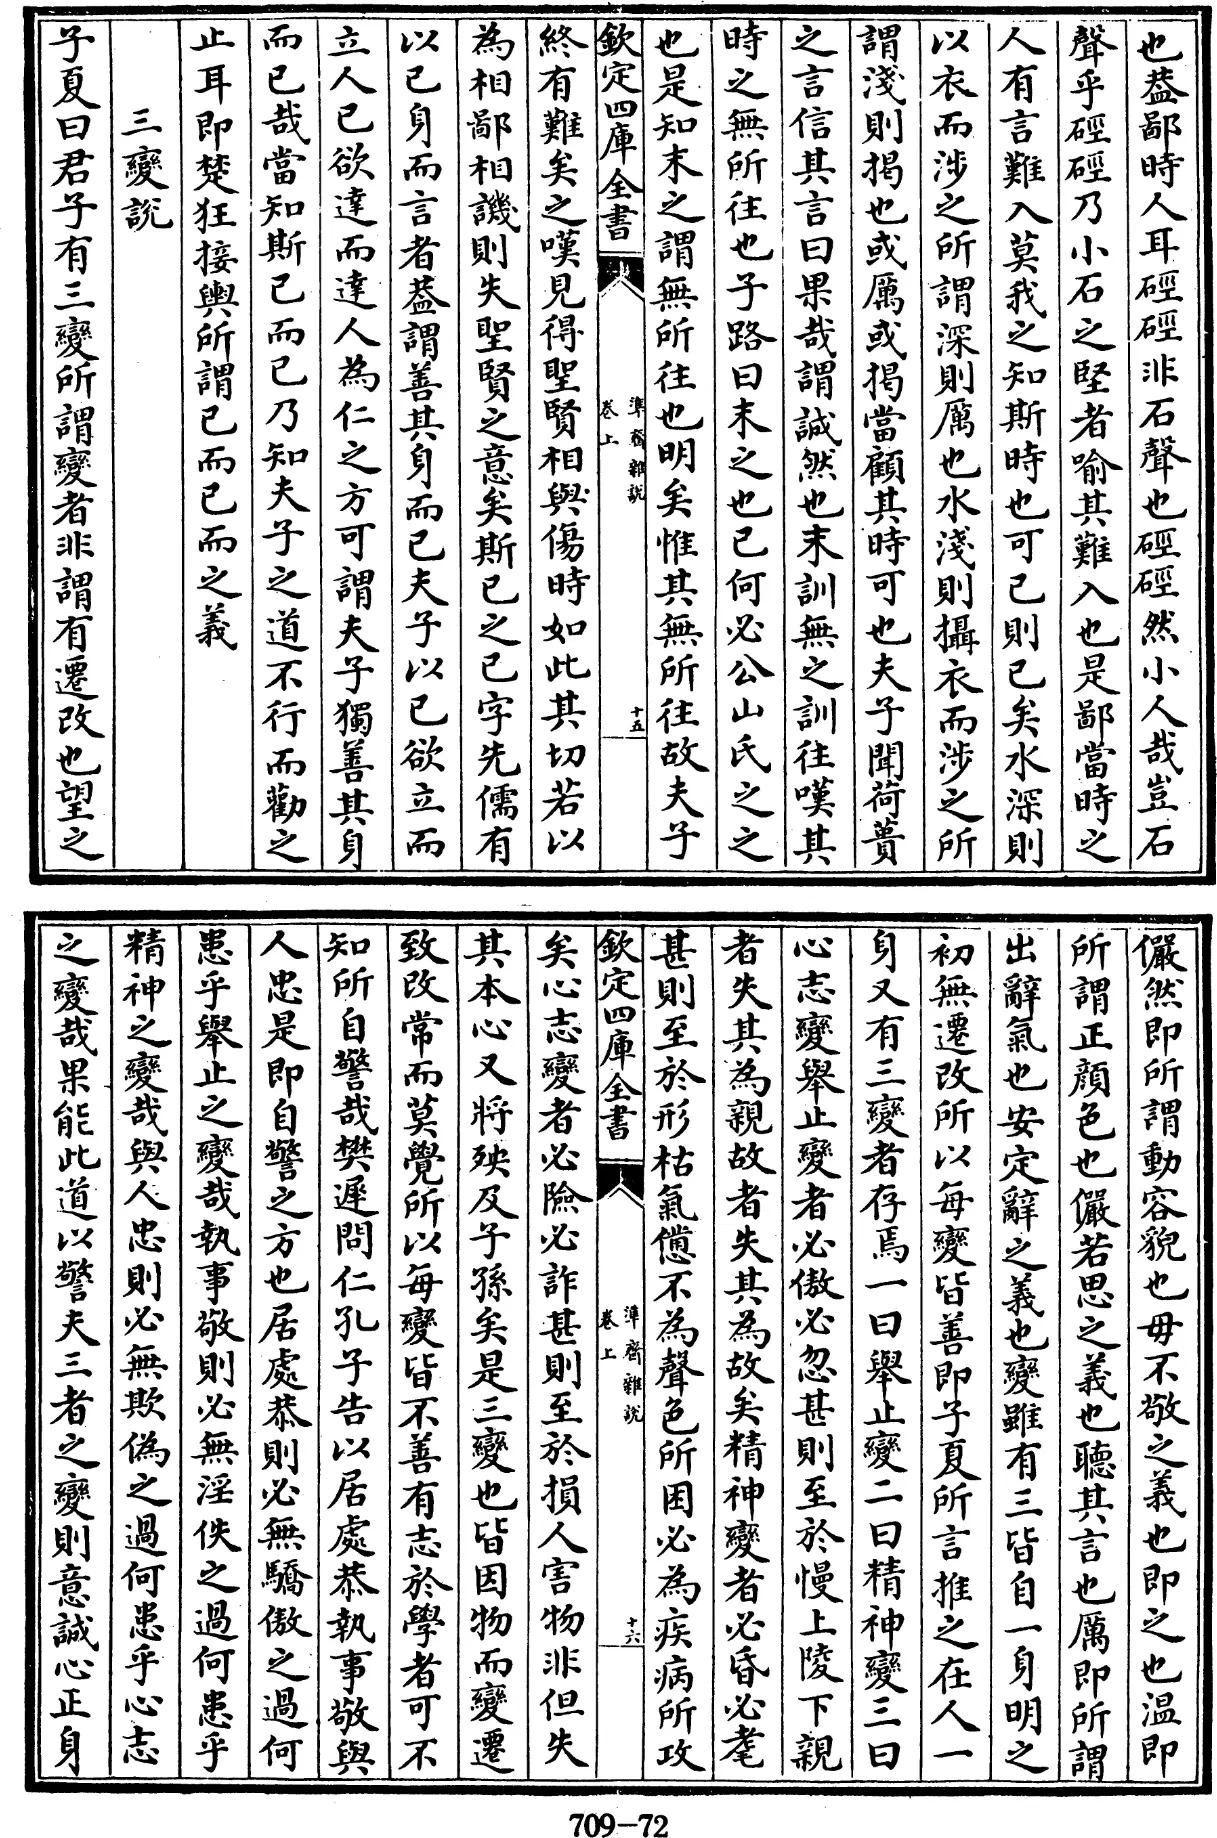 也葢鄙時人耳硜硜非石聲也硜硜然小人哉豈石
聲乎硜硜乃小石之堅者喻其難入也是鄙當時之
人有言難入莫我之知斯時也可已則已矣水深則
以衣而涉之所謂深則厲也水淺則攝衣而涉之所
謂淺則揭也或厲或揭當顧其時可也夫子聞荷蕢
之言信其言曰果哉謂誠然也末訓無之訓往嘆其
時之無所往也子路曰末之也已何必公山氏之之
也是知末之謂無所往也明矣惟其無所往故夫子
欽定四庫全書
準齋雜說
卷上
十五
終有難矣之嘆見得聖賢相與傷時如此其切若以
為相鄙相譏則失聖賢之意矣斯已之已字先儒有
以已身而言者葢謂善其身而已夫子以已欲立而
立人已欲達而達人為仁之方可謂夫子獨善其身
而已哉當知斯已而已乃知夫子之道不行而勸之
止耳即楚狂接輿所謂已而已而之義
三變說
子夏曰君子有三變所謂變者非謂有遷改也望之
儼然即所謂動容貌也毋不敬之義也即之也温即
所謂正顏色也儼若思之義也聽其言也厲即所謂
出辭氣也安定辭之義也變雖有三皆自一身明之
初無遷改所以每變皆善即子夏所言推之在人一
身又有三變者存焉一曰舉止變二曰精神變三曰
心志變舉止變者必傲必忽甚則至於慢上陵下親
者失其為親故者失其為故矣精神變者必昏必耄
甚則至於形枯氣憊不為聲色所困必為疾病所攻
欽定四庫全書
準齋雜說
卷上
十六
矣心志變者必險必詐甚則至於損人害物非但失
其本心又將殃及子孫矣是三變也皆因物而變遷
致改常而莫覺所以每變皆不善有志於學者可不
知所自警哉樊遲問仁孔子告以居處恭執事敬與
人忠是即自警之方也居處恭則必無驕傲之過何
患乎舉止之變哉執事敬則必無淫佚之過何患乎
精神之變哉與人忠則必無欺偽之過何患乎心志
之變哉果能此道以警夫三者之變則意誠心正身
709-72